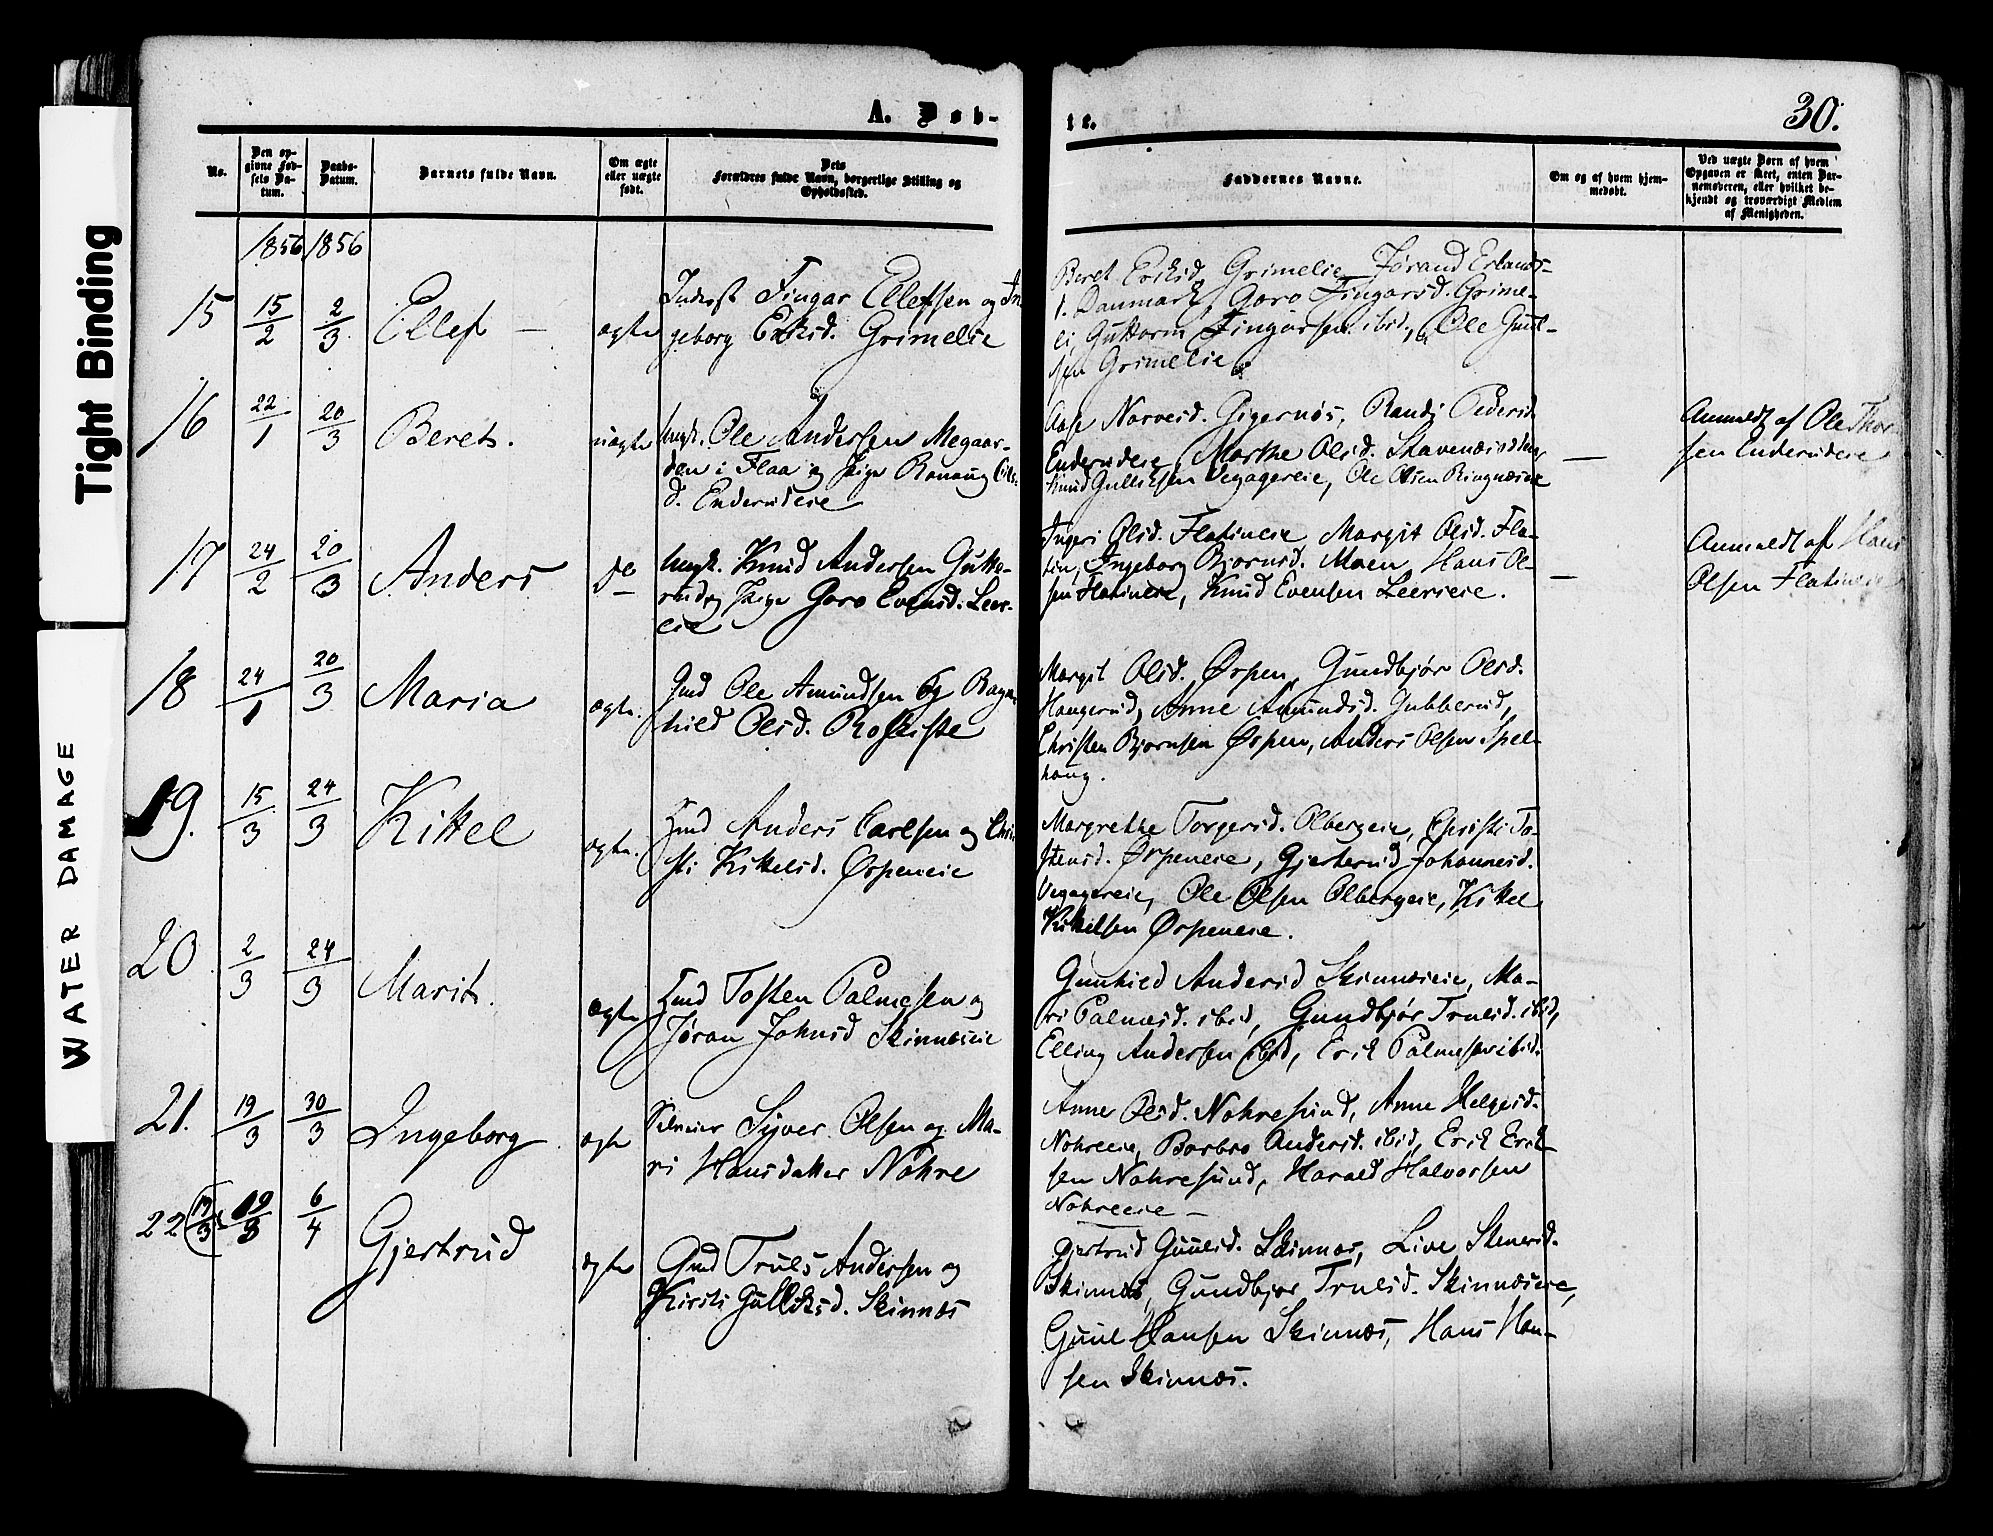 A. Døb-
te.
30.
No.
Den op-
givne Fød-
sels Da-
tum.
Daabs-
Datum.
Barnets fulde Navn.
Om ægte
eller uægte
født.
Dets
Forældres fulde Navn, borgerlige Stilling og
Opholdssted.
Faddernes Navne.
Om og af hvem hjem-
medøbt.
Ved uægte Børn af hvem
Opgaven er skeet, enten Bar-
nemoderen, eller hvilket be-
kjendt og troværdigt Medlem
af Menigheden.
Tight Binding
WATER DAMAGE
1856 1856
15 15/2 2/3 Ellef – ægte
Inderst Fingar Ellefsen og In
geborg Eriksd. Grimelie
Beret Eriksd. Grimelie Jørand Erlands-
d. Danmark, Goro Fingarsd. Grime-
li, Guttorm Fingarsen ibid., Ole Guul-
sen Grimelie
16 22/1 20/3 Beret. uægte
Ungk. Ole Andersen Megaar-
den i Flaa og Pige Ranaug Ols-
d. Enderudeie
Aase Narvesd. Gigernøs, Randi Pedersd.
Enderudeie, Marthe Olsd.
Knud Gulliksen Vegagereie, Ole Olsen Ringnæseie
—
Anmeldt af Ole Thor
sen Enderudeie
17 24/2 20/3 Anders do
Ungk. Knud Andersen Gutte-
rud og Pige Goro Evensd. Leer-
eie
Ingeri Olsd. Flatineie Margit Olsd. Fla-
tin, Ingeborg Bjørnsd. Moen, Hans Ol-
sen Flatineie, Knud Evensen Leereie.
—
Anmeldt af Hans
Olsen Flatineie
18 24/1 20/3 Maria ægte.
Gmd Ole Amundsen og Ragn
hild Olsd. Rosliste
Margit Olsd. Ørpen, Gundbjør Olsd.
Haugerud, Anne Amundsd. Gubberud,
Christen Bjørnsen Ørpen, Anders Olsen Spel-
haug.
19. 15/3 24/3 Kittel ægte.
Hmd Anders Carlsen og Chri
sti Kittelsd. Ørpeneie
Margrethe Torgersd. Olbergeie, Christi To-
stensd. Ørpeneie, Gjertrud Johannesd.
Vegagereie, Ole Olsen Olbergeie, Kittel
Kittelsen Ørpeneie.
20 2/3 24/3 Marit. ægte
Hmd Tosten Palmesen og
Jøran Johnsd Skinnæseie
Gunhild Andersd Skinnæseie, Ma-
ri Palmesd. ibid, Gundbjør Trulsd. ibid,
Elling Andersen ibid, Erik Palmesen ibid.
21. 19/3 30/3 Ingeborg ægte
Selveier Syver Olsen og Ma-
ri Hansdatter Nohre
Anne Olsd. Nohresund, Anne Helgesd.
Nohreeie, Barbro Andersd. ibid, Erik Erik-
sen Nohresund, Harald Halvorsen
Nohreeie –
22 19/3 19/3 6/4 Gjertrud ægte
Gmd Truls Andersen og
Kirsti Gulliksd. Skinnæs
Gjertrud Guulsd. Skinnæs, Live Stenersd.
Skinnæs, Gundbjør Trulsd. Skinnæseie,
Guul Hansen Skinnæs, Hans Han-
sen Skinnæs.